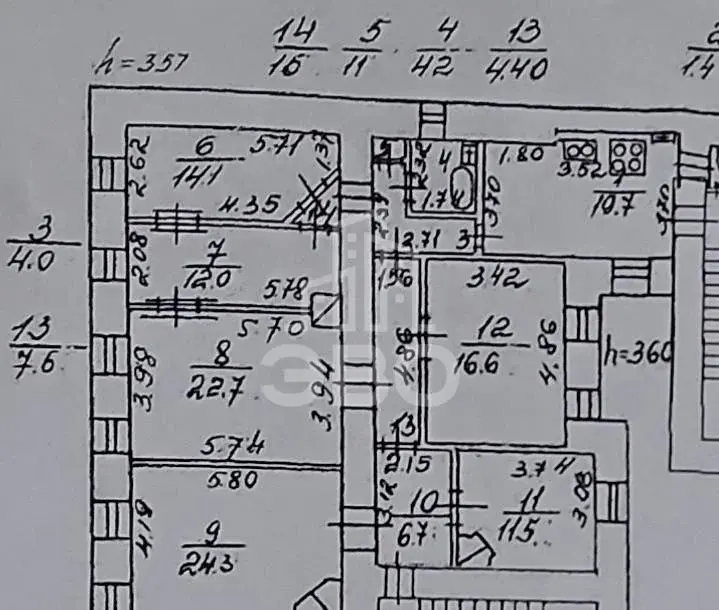 14 5 4 13 2
h=357 16 11 42 4.40 1.4
6 5.71 1.37
2.62 14.1 2.32 4 1.80 3.52 1
4.35 1.74 3.70 10.7 3.70
3
4.0 2.08 7 2.71 3
12.0 5.78 1.56 3.42
13 5.70
7.6 3.98 8 4.86 12 4.86 h=360
22.7 3.94 16.6
ЭВО
5.74 13
5.80 2.15 3.74
4.19 9 3.12 10 11 3.08
24.3 6.7 11.5